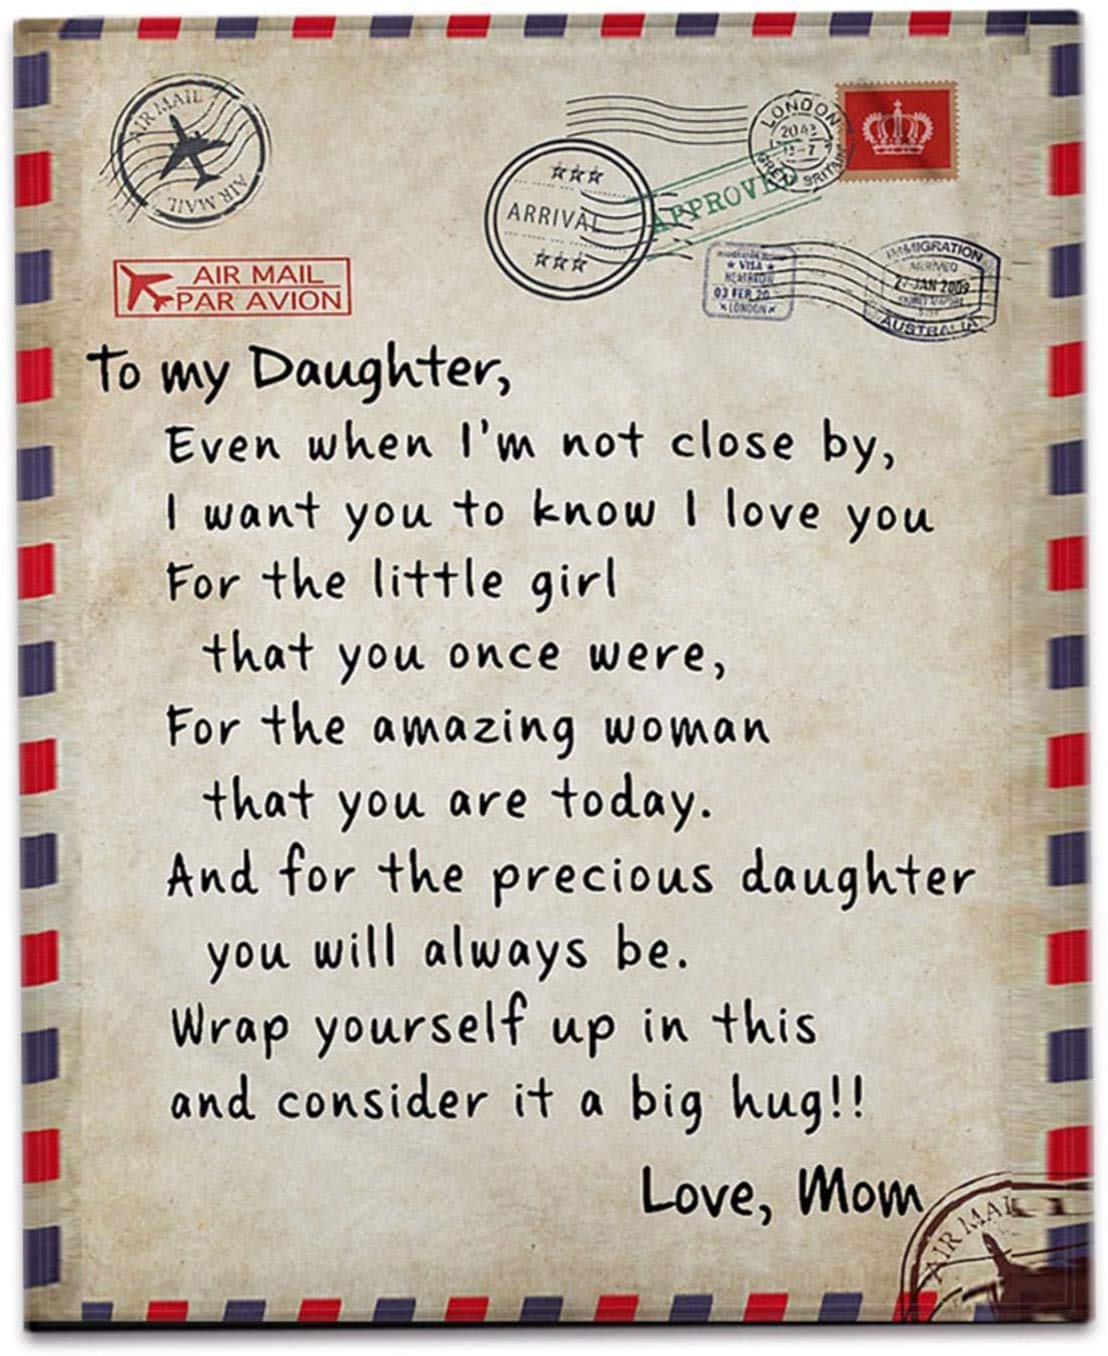 AIR MAIL
AIR MAIL
LONDON
GREAT BRITAIN
ARRIVAL
APPROVED
AIR MAIL
PAR AVION
VISA
03 FEB 20
LONDON
IMMIGRATION
ARRIVED
27 JAN 2009
AUSTRALIA
To my Daughter,
Even when I'm not close by,
I want you to know I love you
For the little girl
that you once were,
For the amazing woman
that you are today.
And for the precious daughter
you will always be.
Wrap yourself up in this
and consider it a big hug!!
Love, Mom
AIR MAIL